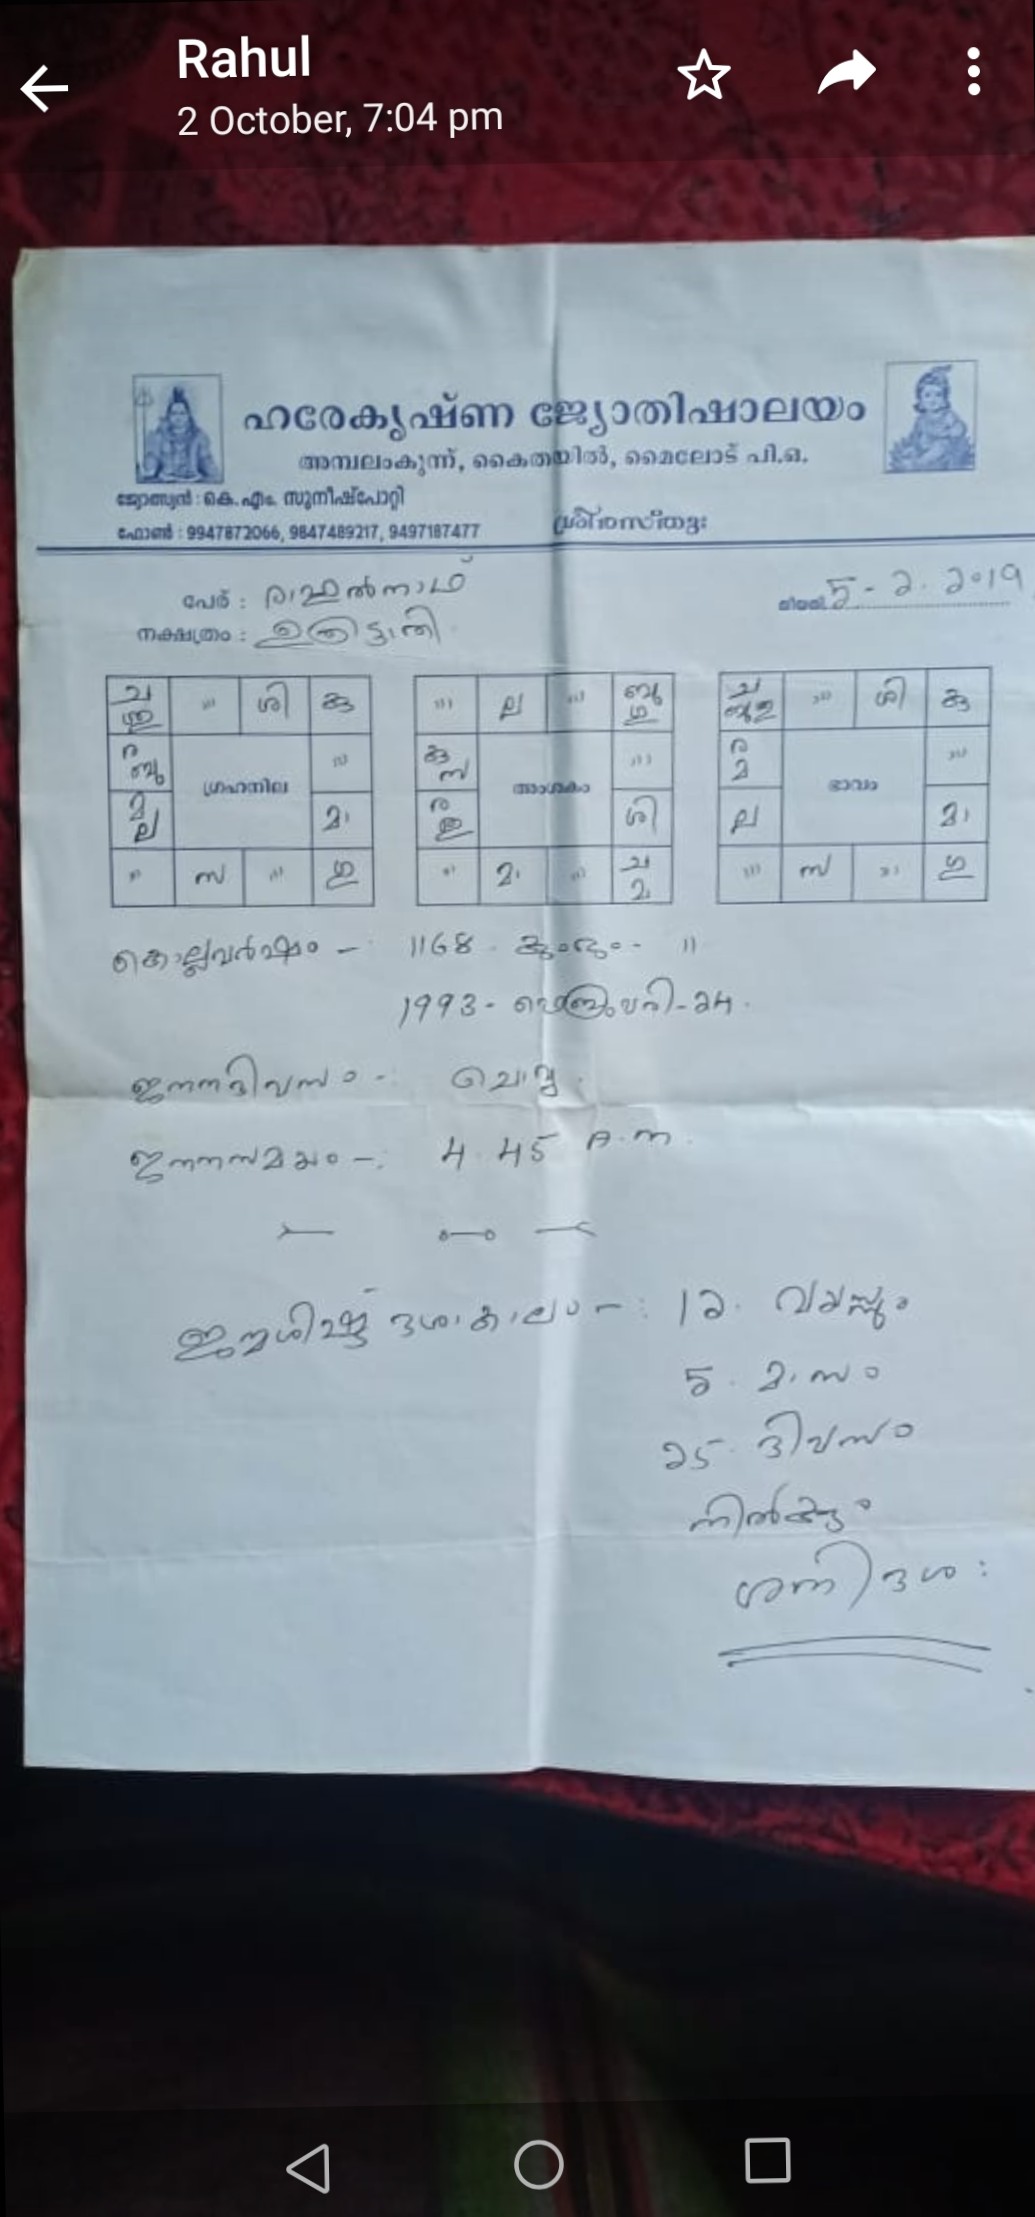 Rahul
2 October, 7:04 pm
ഹരേകൃഷ്ണ ജ്യോതിഷാലയം
അമ്പലംകുന്ന്, കൈതയിൽ, മൈലോട് പി.ഒ.
ജ്യോത്സ്യൻ : കെ.എം. സുനീഷ്പോറ്റി
ഫോൺ : 9947872066, 9847489217, 9497187477
ശ്രീരസ്തുഃ
പേര് : രാഹുൽനാഥ്
തീയതി 5 - 2. 2019
നക്ഷത്രം : ഉത്രട്ടാതി
ച ശു " ശി കു
ര ബു ഗ്രഹനില "
മ ല മാ
" സ " ഗു
" ല " ബു ഗു
കു സ അംശകം "
ര ശു ശി
" മാ " ച മ
ച " ശി കു
ര മ ഭാവം "
ല മാ
" സ " ഗു
കൊല്ലവർഷം - 1168 - കുംഭം - 11
1993 - ഫെബ്രുവരി - 24.
ജനനദിവസം - ചൊവ്വ.
ജനനസമയം - : 4. 45 A.m.
ദശാകാലം - : 12. വയസ്സും
5. മാസം
25. ദിവസം
നിൽക്കും
ശനിദശ :